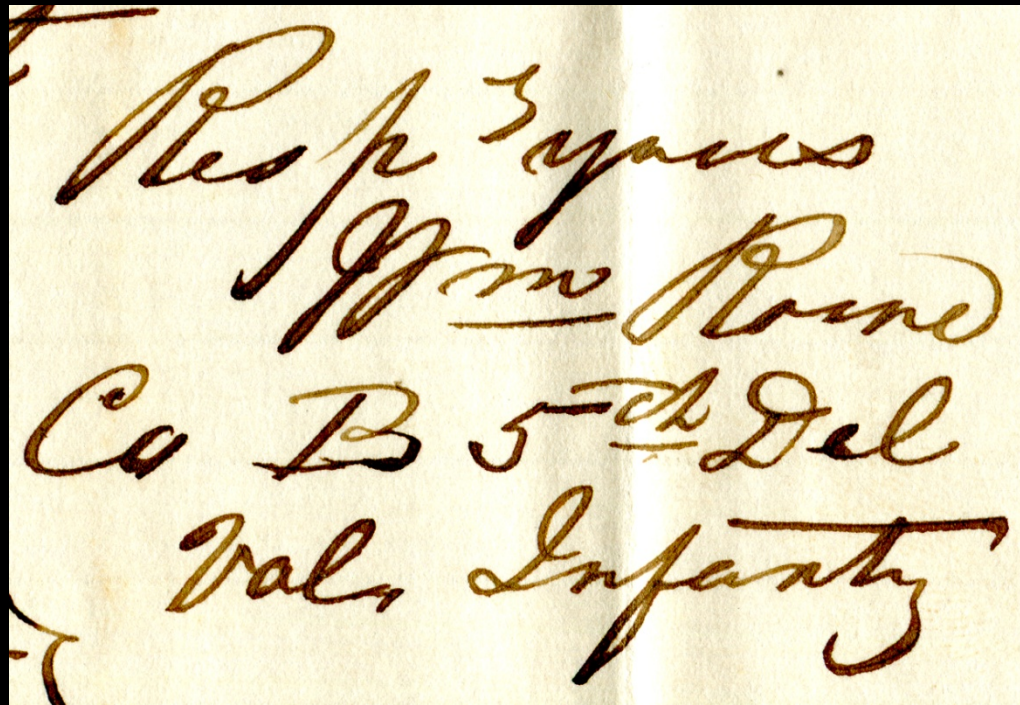 Resp y yours
Wm Roune
Co B 5th Del
Vol. Infanty